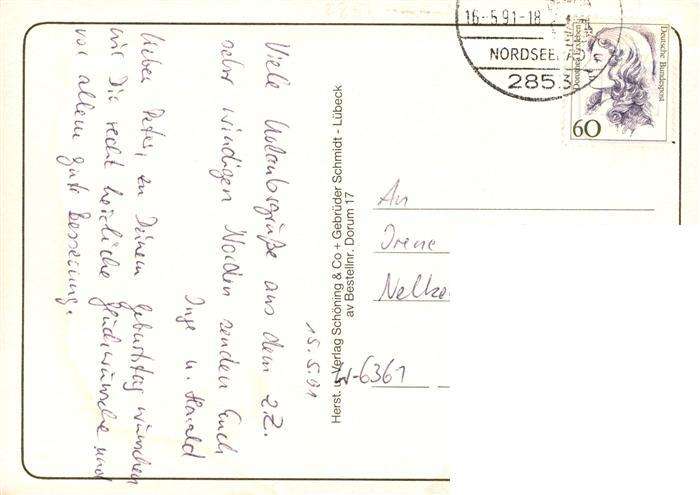 16-5.91-18
NORDSEE
285
Deutsche Bundespost
60
Viele Urlaubsgrüße aus dem z.Z.
sehr windigen Norden senden Euch
Inge u. Harald
15.5.91
Lieber Peter, zu Deinem Geburtstag wünschen
wir Dir recht herzliche Glückwünsche und
vor allem gute Besserung.
Herst. u. Verlag Schöning & Co + Gebrüder Schmidt - Lübeck
av Bestellnr. Dorum 17
An
Irene
W-6361